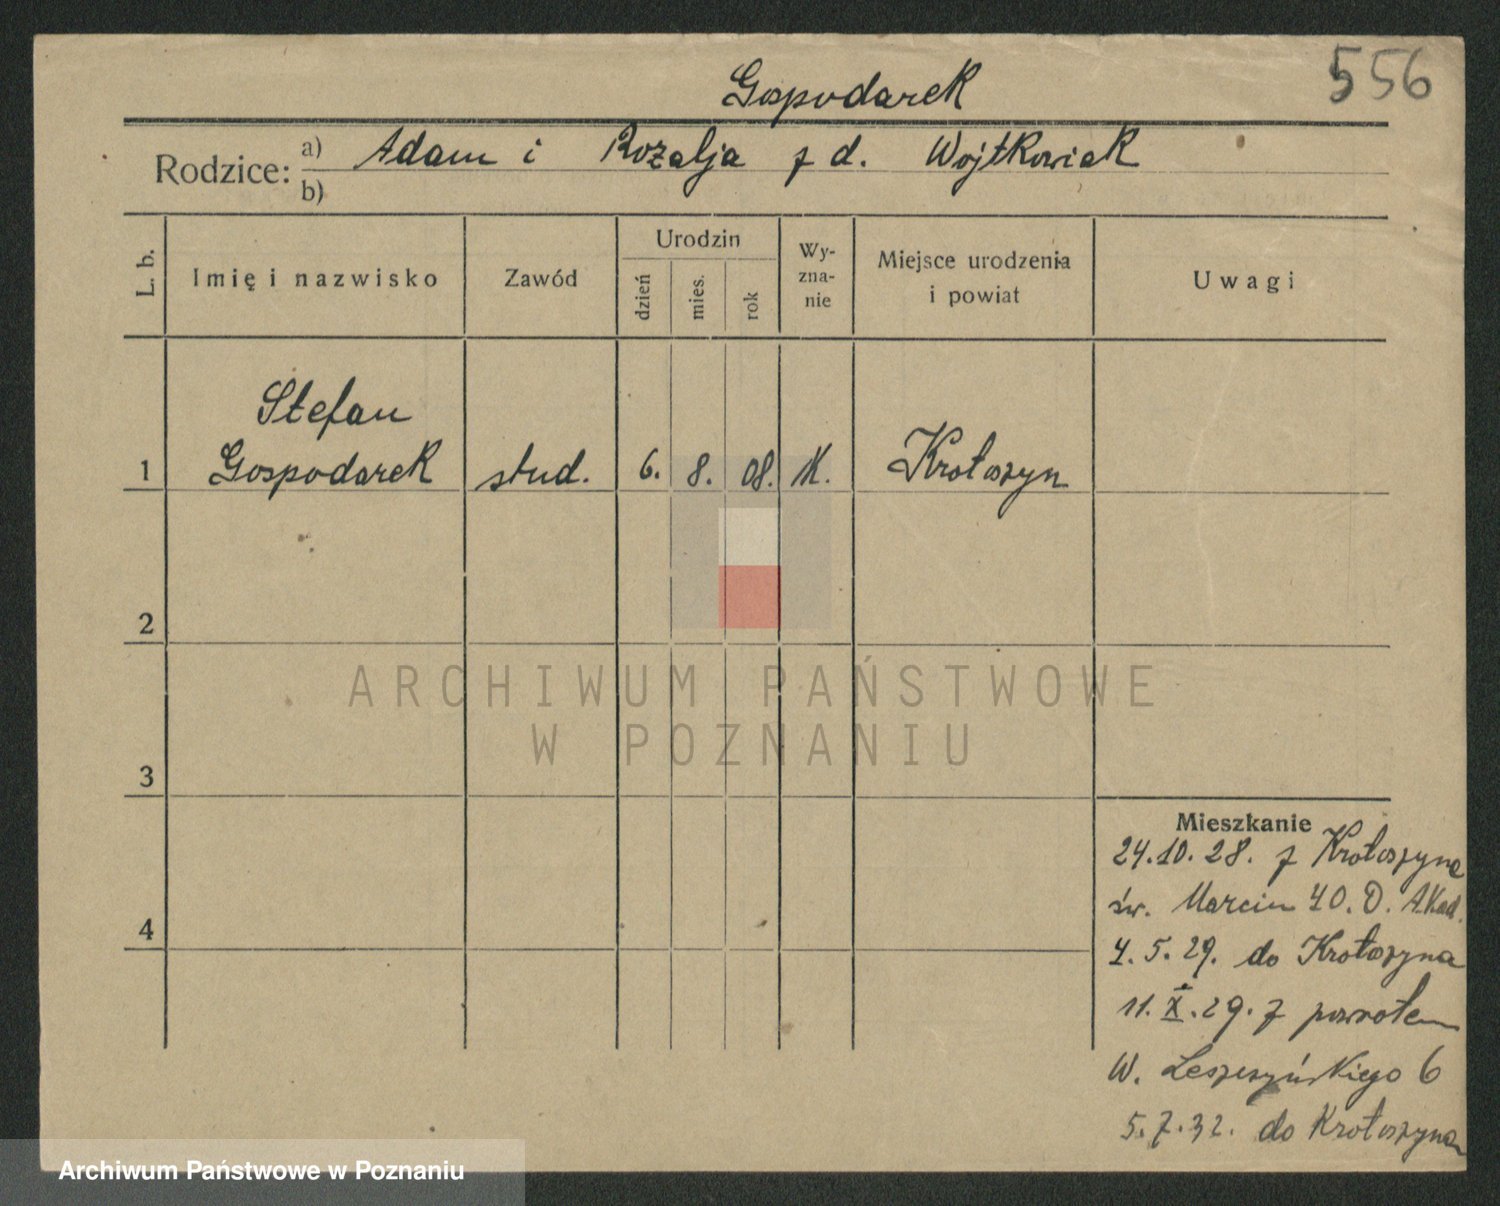 556
Gospodarek
Rodzice: a) Adam i Rozalja z d. Wojtkowiak
b)
L. b.
Imię i nazwisko
Zawód
Urodzin
dzień
mies.
rok
Wy-
zna-
nie
Miejsce urodzenia
i powiat
Uwagi
Stefan
1 Gospodarek stud. 6. 8. 08. K. Krotoszyn
2
3
4
Mieszkanie
24.10.28. z Krotoszyna
św. Marcin 40. D. Akad.
4.5.29. do Krotoszyna
11.X.29. z powrotem
W. Leszczyńskiego 6
5.7.32. do Krotoszyna
ARCHIWUM PAŃSTWOWE
W POZNANIU
Archiwum Państwowe w Poznaniu